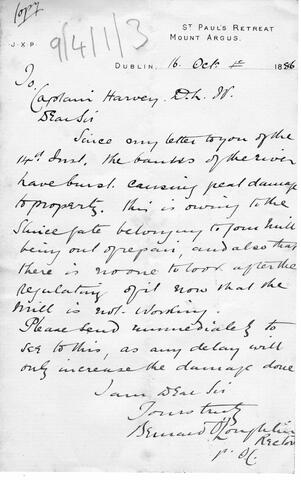 Copy
St Paul's Retreat
Mount Argus.
J.X.P.
9/4/1/3
Dublin, 16 Oct. 1886
To
Captain Harvey. D.L.
Dear Sir
Since my letter to you of the
14th Inst, the banks of the river
have burst causing great damage
to property. This is owing to the
Sluice gate belonging to your Mill
being out of repair, and also that
there is no one to look after the
regulating of it now that the
Mill is not working.
Please send immediately to
see to this, as any delay will
only increase the damage done
I am Dear Sir
Yours truly
Bernard O'Loughlin
Rector